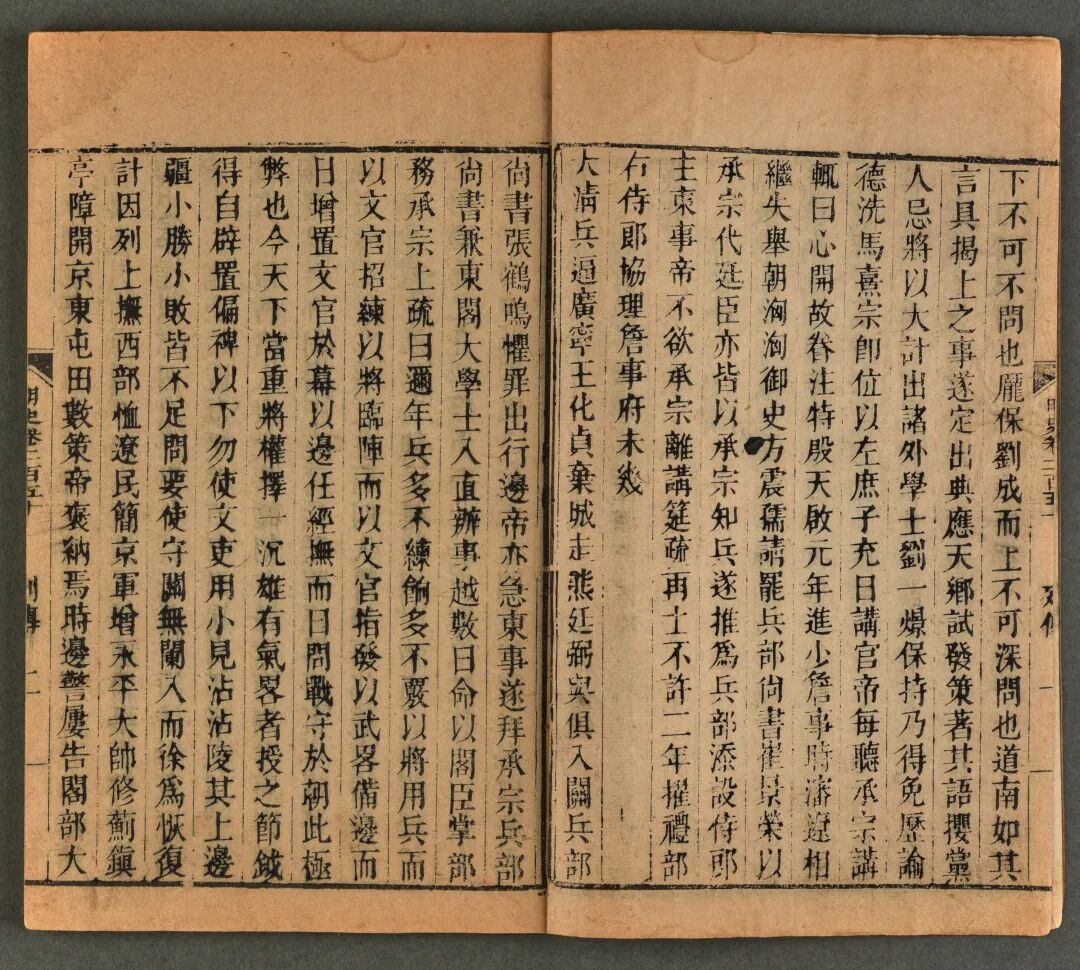 下不可不問也龎保劉成而上不可深問也道南如其
言具揭上之事遂定出典應天鄉試發策著其語攖黨
人忌將以大計出諸外學士劉一燝保持乃得免歷諭
德洗馬熹宗卽位以左庶子充日講官帝每聽承宗講
輒曰心開故眷注特殷天啟元年進少詹事時瀋遼相
繼失舉朝洶洶御史方震孺請罷兵部尙書崔景榮以
承宗代廷臣亦皆以承宗知兵遂推爲兵部添設侍郎
主東事帝不欲承宗離講筵疏再上不許二年擢禮部
右侍郎協理詹事府未幾
大淸兵逼廣寧王化貞棄城走熊廷弼與俱入關兵部
尙書張鶴鳴懼罪出行邊帝亦急東事遂拜承宗兵部
尙書兼東閣大學士入直辦事越數日命以閣臣掌部
務承宗上疏曰邇年兵多不練餉多不覈以將用兵而
以文官招練以將臨陣而以文官指發以武畧備邊而
日增置文官於幕以邊任經撫而日問戰守於朝此極
弊也今天下當重將權擇一沉雄有氣畧者授之節鉞
得自辟置偏裨以下勿使文吏用小見沾沾陵其上邊
疆小勝小敗皆不足問要使守關無闌入而徐爲恢復
計因列上撫西部恤遼民簡京軍增永平大帥修薊鎭
亭障開京東屯田數策帝褒納焉時邊警屢吿閣部大
明史卷二百五十
列傳
二